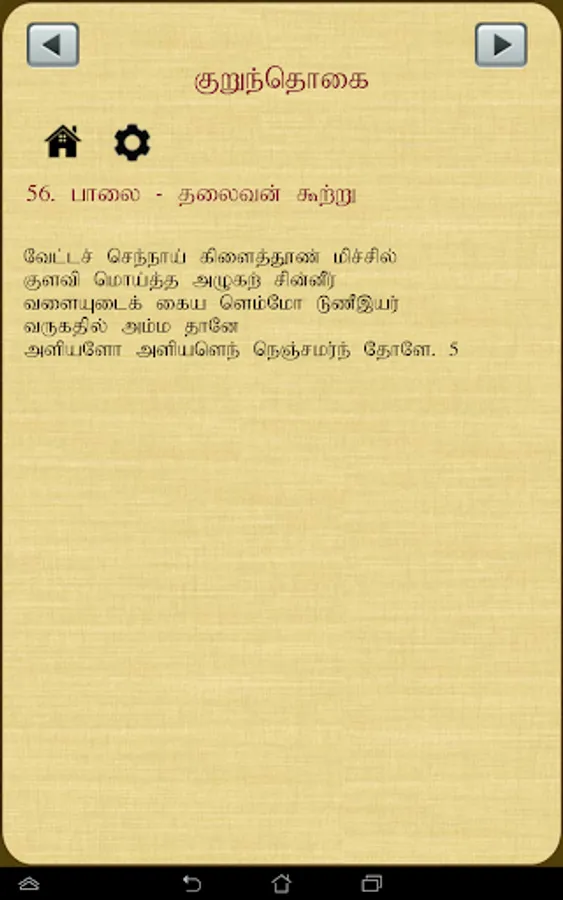 குறுந்தொகை
56. பாலை - தலைவன் கூற்று
வேட்டச் செந்நாய் கிளைத்தூண் மிச்சில்
குளவி மொய்த்த அழுகற் சின்னீர்
வளையுடைக் கைய ளெம்மோ டுணீஇயர்
வருகதில் அம்ம தானே
அளியளோ அளியளெந் நெஞ்சமர்ந் தோளே. 5